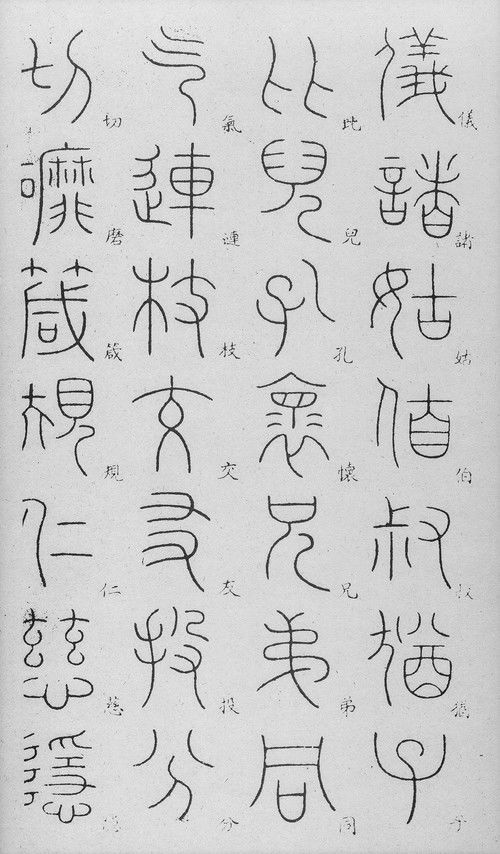 儀諸姑伯叔猶子
比兒孔懷兄弟同
氣連枝交友投分
切磨箴規仁慈隱